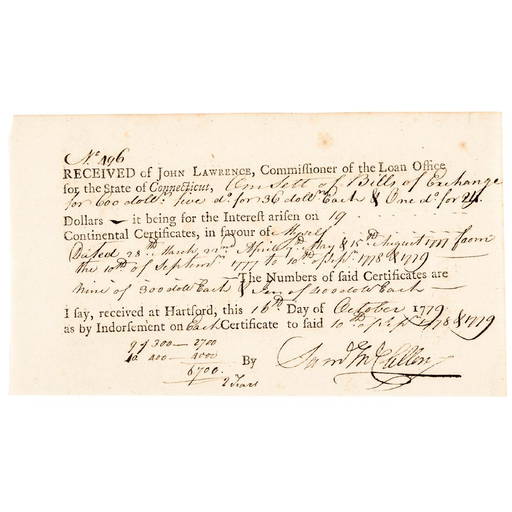 No. 496
RECEIVED of JOHN LAWRENCE, Commissioner of the Loan Office
for the State of Connecticut, One Sett of Bills of Exchange
for 600 dolls. five do. for 36 dolrs. Each & One do. for 24
Dollars it being for the Interest arisen on 19
Continental Certificates, in favour of Myself
Dated 28th. March 22nd April 7th May & 15th August 1777 from
the 10th of Septemr. 1777 to 10th Sept. 1778 & 1779
The Numbers of said Certificates are
Nine of 300 doll Each & Ten of 400 doll Each
I say, received at Hartford, this 16th. Day of October 1779
as by Indorsement on Each Certificate to said 10th Sept. 1778 & 1779
9 of 300 — 2700
10 400 — 4000
6700.
2 Years
By Samd. McClellen